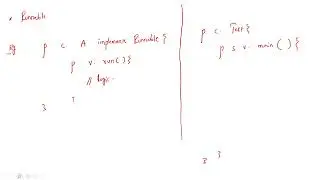 * Runnable
Eg p c A implements Runnable {
p v run() {
// logic
}
}
p c Test {
p s v main() {
}
}